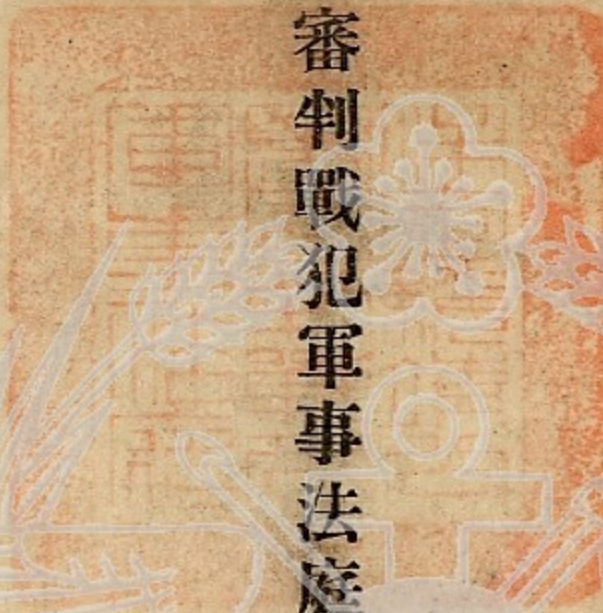 審判戰犯軍事法庭